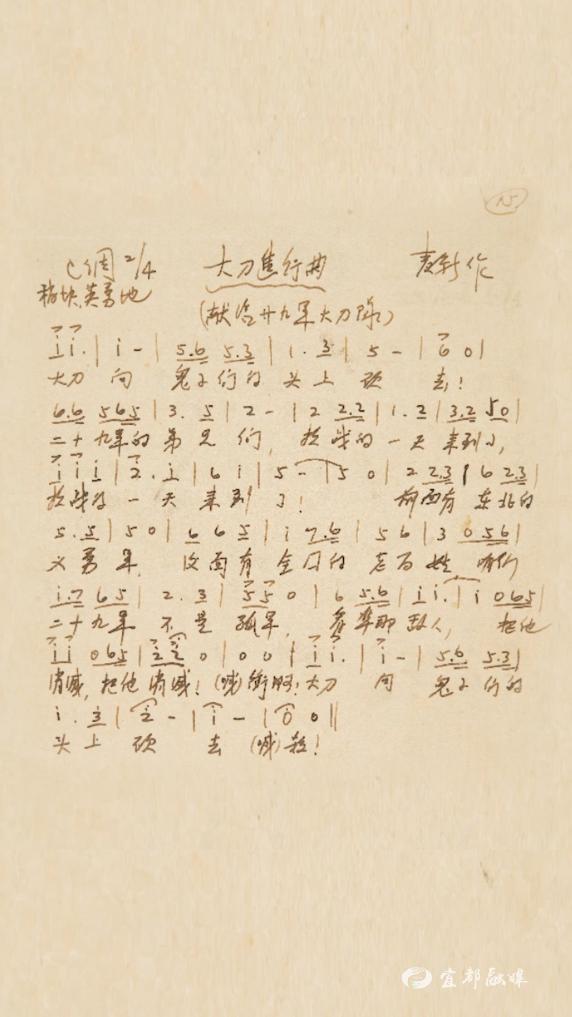 15
C调 2/4 大刀進行曲 麦新作
稍快英勇地
(献给廿九军大刀队)
i i. | i - | 5.6 5.3 | 1. 3 | 5 - | 6 0 |
大刀 向 鬼子们的 头上 砍 去!
6.6 565 | 3. 5 | 2 - | 2 2.2 | 1. 2 | 3.2 50 |
二十九军的 弟兄 们, 抗战的 一天 来到了,
i i i | 2. i | 6 i | 5 - | 5 0 | 2 2.3 | 6 2.3 |
抗战的 一天 来到 了! 前面有 东北的
5. 5 | 5 0 | 6 6 5 | i 7.6 | 5 6 | 3 0 5 6 |
义勇军, 后面有 全国的 老百姓 咱们
i.7 6 5 | 2. 3 | 5 5 0 | 6 5.6 | i i. | i 0 6 5 |
二十九军 不是 孤军, 看準那敌人, 把他
i i 0 6 5 | 2 2 0 | 0 0 | i i. | i - | 5.6 5.3 |
消滅, 把他 消滅! (喊)衝啊! 大刀 向 鬼子们的
i. 3 | 2 - | i - | i 0 ||
头上 砍 去 (喊)殺!
宜都融媒